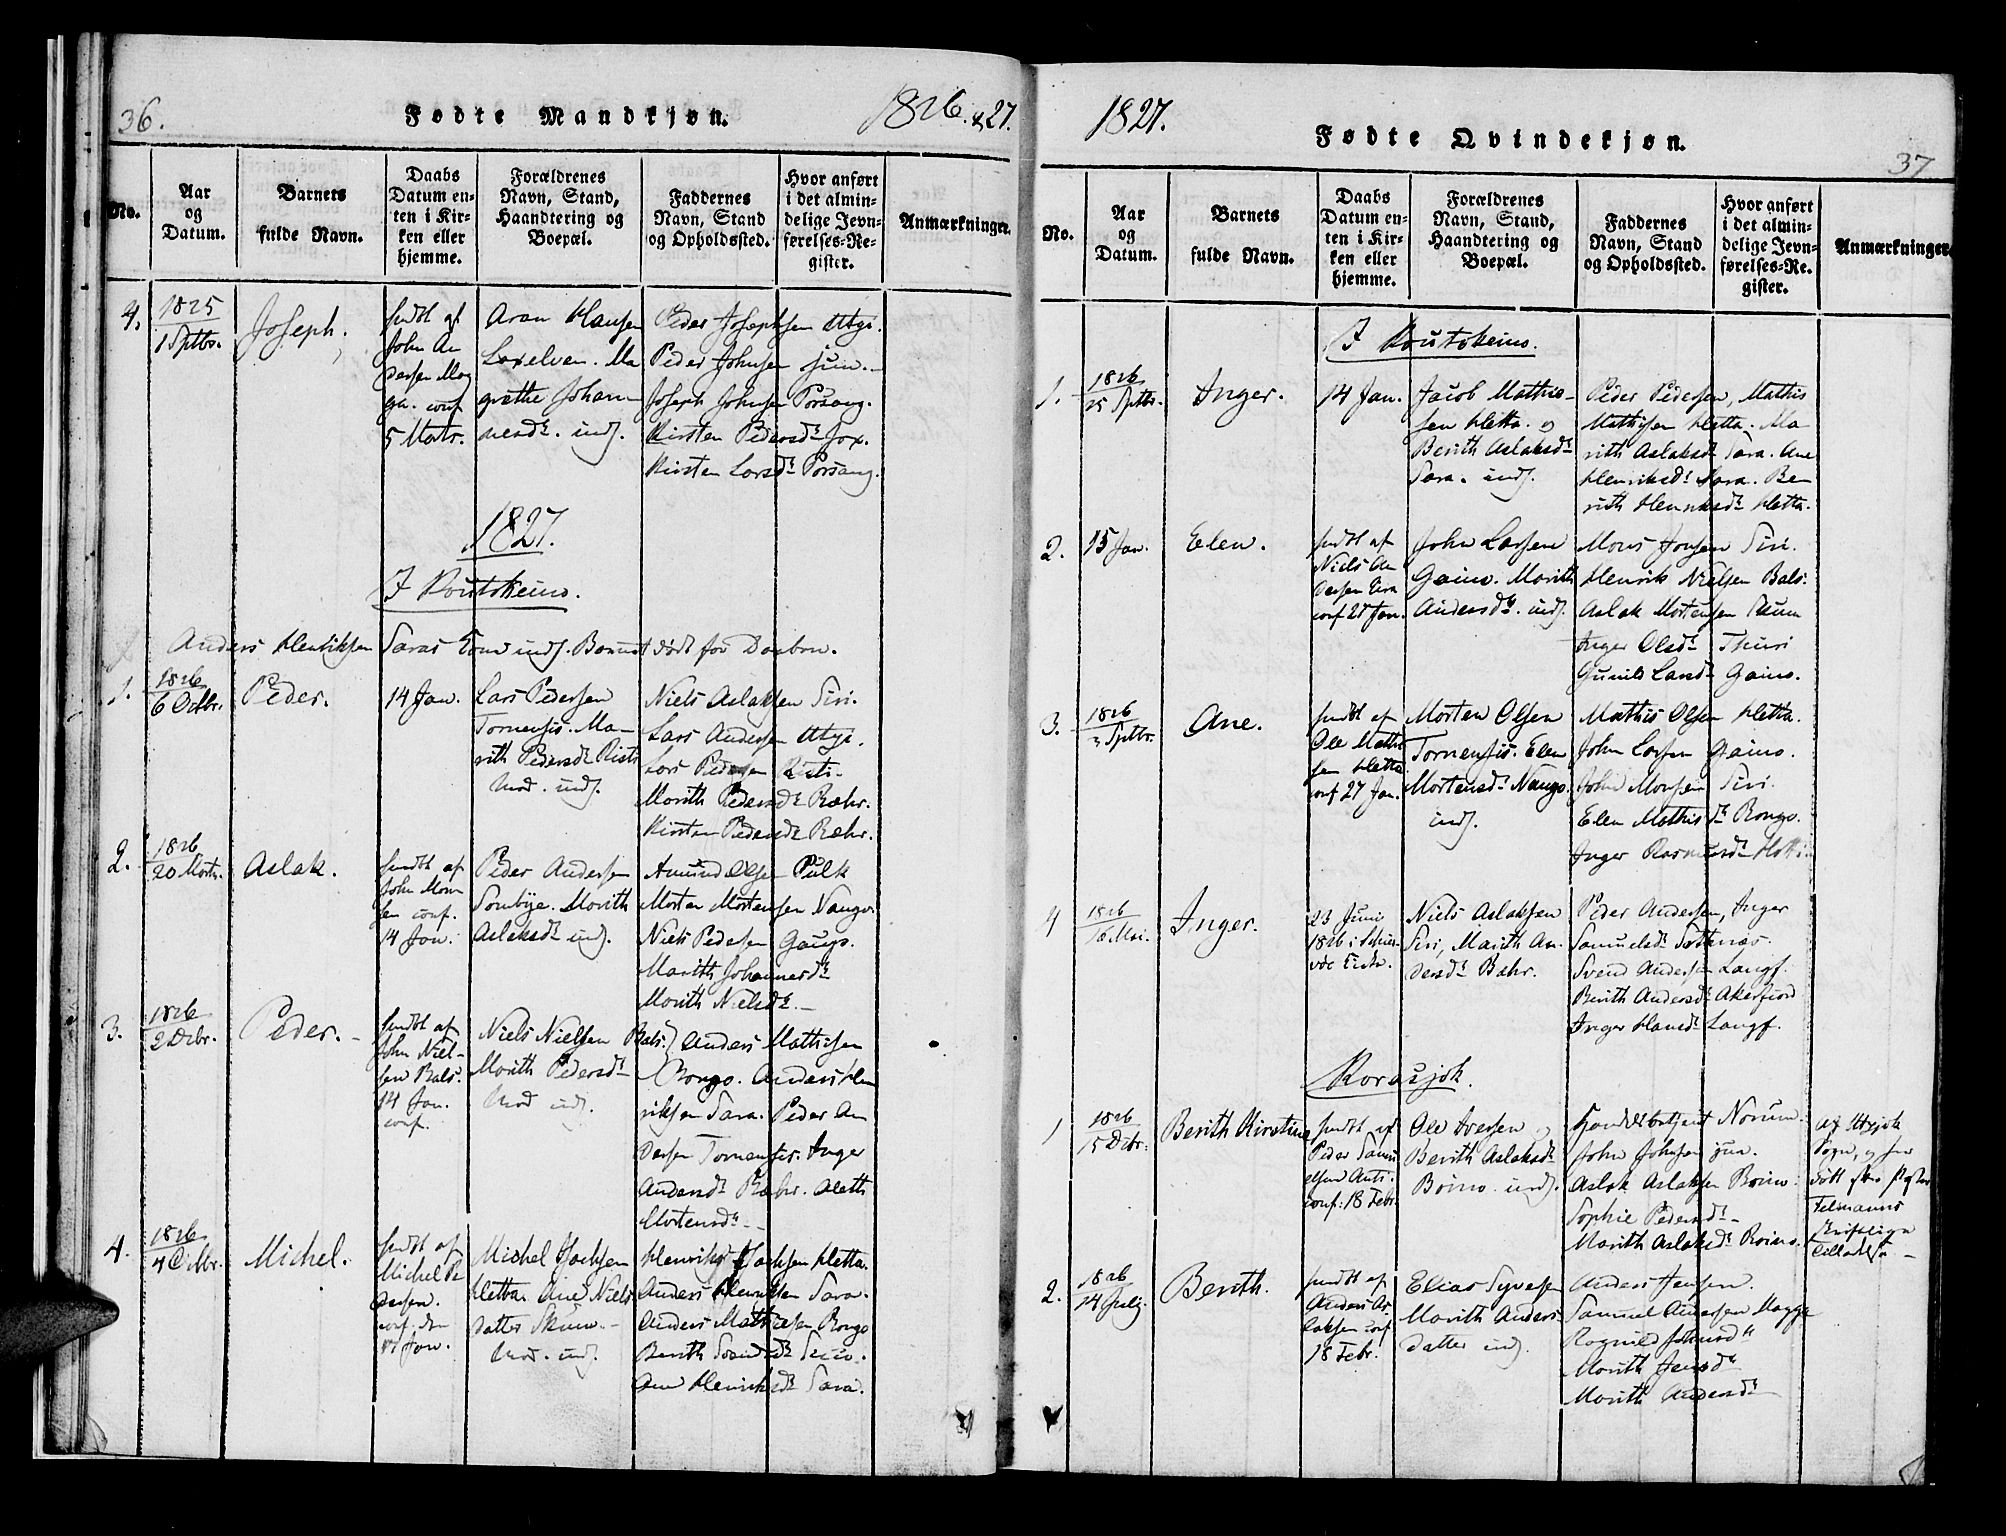 36.
Fødte Mandkjøn.
1826 & 27.
No.
Aar
og
Datum.
Barnets
fulde Navn.
Daabs
Datum en-
ten i Kir-
ken eller
hjemme.
Forældrenes
Navn, Stand,
Haandtering og
Boepæl.
Faddernes
Navn, Stand
og Opholdssted.
Hvor anført
i det almin-
delige Jevn-
førelses-Re-
gister.
Anmærkninger.
4.
1825
1 Sptbr.
Joseph.
hmdbt af
John An
dersen
conf
5 Marts.
Aron Hansen
Laxelven. Ma
grethe Johan
nesdr. indf.
Peder Josephsen Utsj.
Peder Johnsen jun.
Joseph Johnsen Porsang.
Kirsten Pedersdr
Kirsten Larsdr Porsang.
1827.
I Koutokeino.
Anders Henriksen Saras indf. Barnet dødt før Daaben.
1.
1826
6 Octbr.
Peder.
14 Jan.
Lars Pedersen
Tornensis. Ma-
rith Pedersdr
indf.
Niels Aslaksen Siri.
Lars Andersen Utsj.
Lars Pedersen
Marith Pedersdr Bæhr.
Kirsten Pedersdr Bæhr.
2.
1826
20 Marts.
Aslak.
hmdbt af
John Mon
sen conf.
14 Jan.
Peder Andersen
Sombye. Marith
Aslaksdr indf.
Amund Olsen Pulk
Morten Mortensen Nango.
Niels Pedersen Gaup.
Marith Johannesdr
Marith Nielsdr. –
3.
1826
2 Dcbr.
Peder. –
hmdbt af
John Niel-
sen Bals.
14 Jan.
conf.
Niels Nielsen Bals.
Marith Pedersdr
indf.
Anders Mathisen
Rongo. Anders Hen
riksen Sara. Peder An
dersen Tornensis. Inger
Andersdr Bæhr.
Mortensdr. –
4.
1826
4 Octbr.
Michel.
hmdbt af
Michel Pe
dersen.
conf. den
Jan.
Michel Isaksen
Hetta. Ane Niels
datter Skum. –
indf.
Henrik Isaksen Hetta.
Anders Henriksen Sara.
Anders Mathisen Rongo
Berith
Ane Henriksdr Sara.
1827.
Fødte Qvindekjøn.
37
No.
Aar
og
Datum.
Barnets
fulde Navn.
Daabs
Datum en-
ten i Kir-
ken eller
hjemme.
Forældrenes
Navn, Stand,
Haandtering og
Boepæl.
Faddernes
Navn, Stand
og Opholdssted.
Hvor anført
i det almin-
delige Jevn-
førelses-Re-
gister.
Anmærkninger
I Koutokeino.
1.
1826
25 Sptbr.
Inger.
14 Jan.
Jacob Mathis-
sen Hetta. og
Berith Aslaksdr
Sara. indf.
Peder Pedersen, Mathis
Mathisen Hetta. Ma
rith Aslaksdr Sara. Ane
Henriksdr Sara. Be
rith Henriksdr Hetta.
2.
15 Jan.
Elen.
hmdbt af
Niels An
dersen
conf 27 Jan.
John Larsen
Gaino. Marith
Andersdr. indf.
Mons Jonsen Siri.
Henrik Nielsen Bals.
Aslak Mortensen Skum
Inger Olsdr Thuri
Gunild Larsdr Gaino.
3.
1826
3 Sptbr.
Ane.
hmdbt af
Ole Mathi
sen Hetta
conf 27 Jan.
Morten Olsen
Tornensis. Elen
Mortensdr Nango.
indf.
Mathis Olsen Hetta.
John Larsen Gaino.
John Monsen Siri.
Elen Mathisdr Rongo.
Inger Rasmusdr
4
1826
16 Mai.
Inger.
23 Juni
1826 i
Niels Aslaksen
Siri, Marith An
dersdr Bæhr.
Peder Andersen, Inger
Samuelsdr
Svend Andersen Langf.
Berith Andersdr Akerfiord
Inger Hansdr Langf.
Karasjok.
1
1826
15 Dcbr.
Berith Kirstine
hmdbt af
Peder Samu
elsen Anti.
conf. 18 Febr
Ole Iversen og
Berith Aslaksdr
Boino. indf.
Norum.
John Johnsen jun.
Aslak Aslaksen Boino.
Sophie Pedersdr –
Marith Aslaksdr Boino.
af Utsjok
Sogn, og her
døbt efter Pastor
Felmanns
skriftlige
Tilladelse –
2.
1826
14 July.
Berith.
hmdbt af
Anders As
laksen conf
18 Febr.
Elias Syversen
Marith Anders
datter indf.
Anders Jensen.
Samuel Andersen Magga
Ragnild Johnsdr
Marith Jensdr
Marith Andersdr